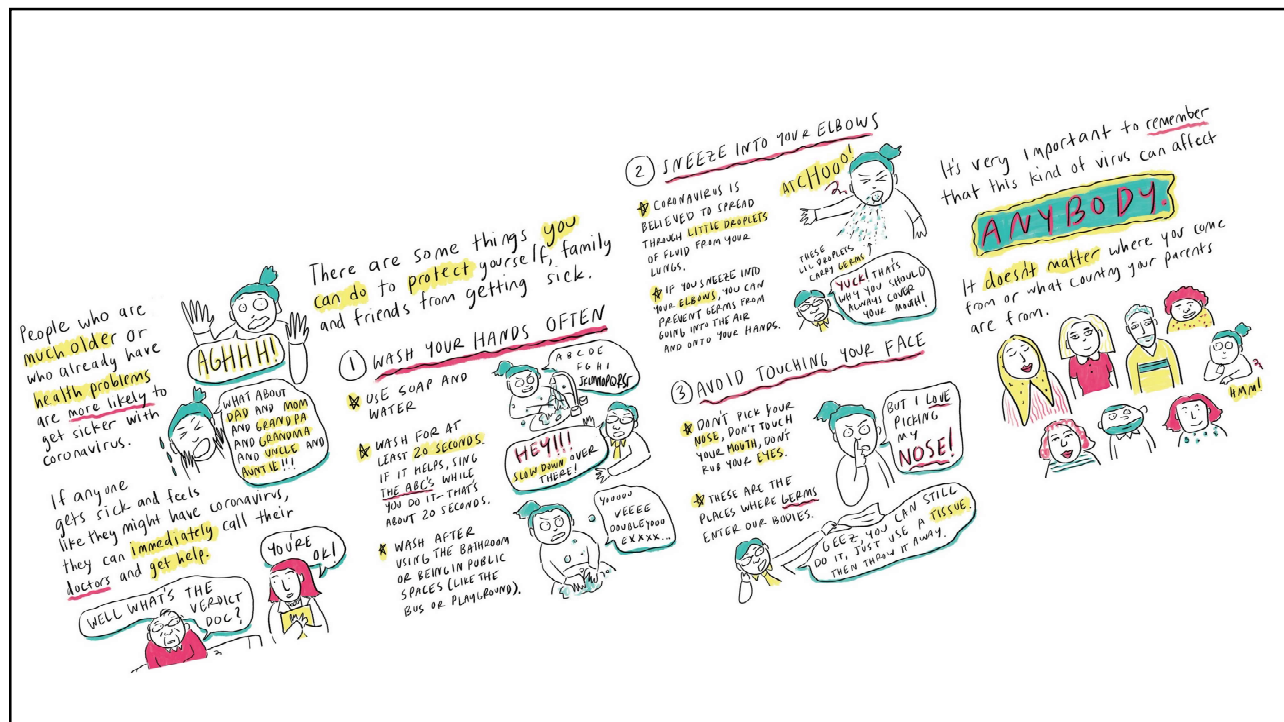 People who are
much older or
who already have
health problems
are more likely to
get sicker with
coronavirus.
AGHHH!
WHAT ABOUT
DAD AND MOM
AND GRANDPA
AND GRANDMA
AND UNCLE AND
AUNTIE!!!
If anyone
gets sick and feels
like they might have coronavirus,
they can immediately call their
doctors and get help.
WELL WHAT'S THE
VERDICT
DOC?
YOU'RE
OK!
There are some things you
can do to protect yourself, family
and friends from getting sick.
1 WASH YOUR HANDS OFTEN
USE SOAP AND
WATER
WASH FOR AT
LEAST 20 SECONDS.
IF IT HELPS, SING
THE ABC'S WHILE
YOU DO IT—THAT'S
ABOUT 20 SECONDS.
WASH AFTER
USING THE BATHROOM
OR BEING IN PUBLIC
SPACES (LIKE THE
BUS OR PLAYGROUND).
A B C D E
F G H I
JKLMNOPQRST
HEY!!!
SLOW DOWN OVER
THERE!
YOOOOU
VEEEE
DOUBLEYOOO
EXXXX...
2 SNEEZE INTO YOUR ELBOWS
CORONAVIRUS IS
BELIEVED TO SPREAD
THROUGH LITTLE DROPLETS
OF FLUID FROM YOUR
LUNGS.
IF YOU SNEEZE INTO
YOUR ELBOWS, YOU CAN
PREVENT GERMS FROM
GOING INTO THE AIR
AND ONTO YOUR HANDS.
ATCHOOO!
THESE
LIL DROPLETS
CARRY GERMS
YUCK! THAT'S
WHY YOU SHOULD
ALWAYS COVER
YOUR MOUTH!
3 AVOID TOUCHING YOUR FACE
DON'T PICK YOUR
NOSE, DON'T TOUCH
YOUR MOUTH, DON'T
RUB YOUR EYES.
THESE ARE THE
PLACES WHERE GERMS
ENTER OUR BODIES.
BUT I LOVE
PICKING
MY
NOSE!
GEEZ, YOU CAN STILL
DO IT, JUST USE A TISSUE.
THEN THROW IT AWAY.
It's very important to remember
that this kind of virus can affect
ANYBODY.
It doesn't matter where you come
from or what country your parents
are from.
HMM!